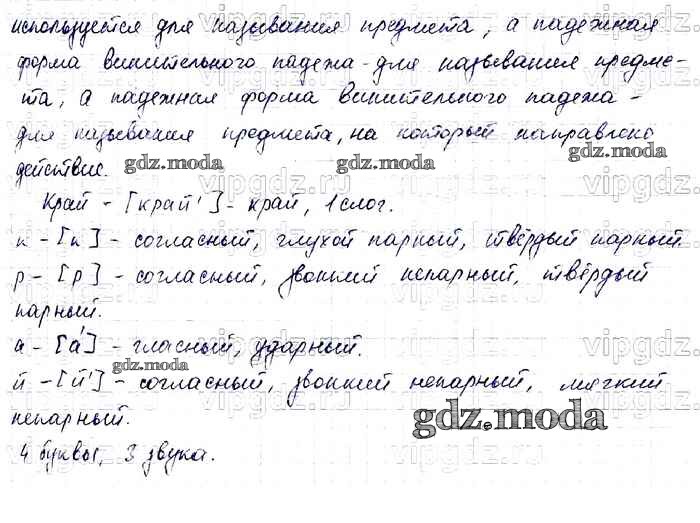 используется для называния предмета, а падежная
форма винительного падежа - для называния предме-
та, а падежная форма винительного падежа -
для называния предмета, на который направлено
действие.
gdz.moda gdz.moda gdz.moda
Край - [край'] - край, 1 слог.
к - [к] - согласный, глухой парный, твёрдый парный.
р - [р] - согласный, звонкий непарный, твёрдый
парный.
а - [а́] - гласный, ударный.
gdz.moda
й - [й'] - согласный, звонкий непарный, мягкий
непарный.
gdz.moda
4 буквы, 3 звука.
vipgdz.ru